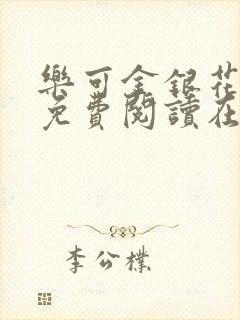 樂可金銀花
免費閱讀在
李公樸